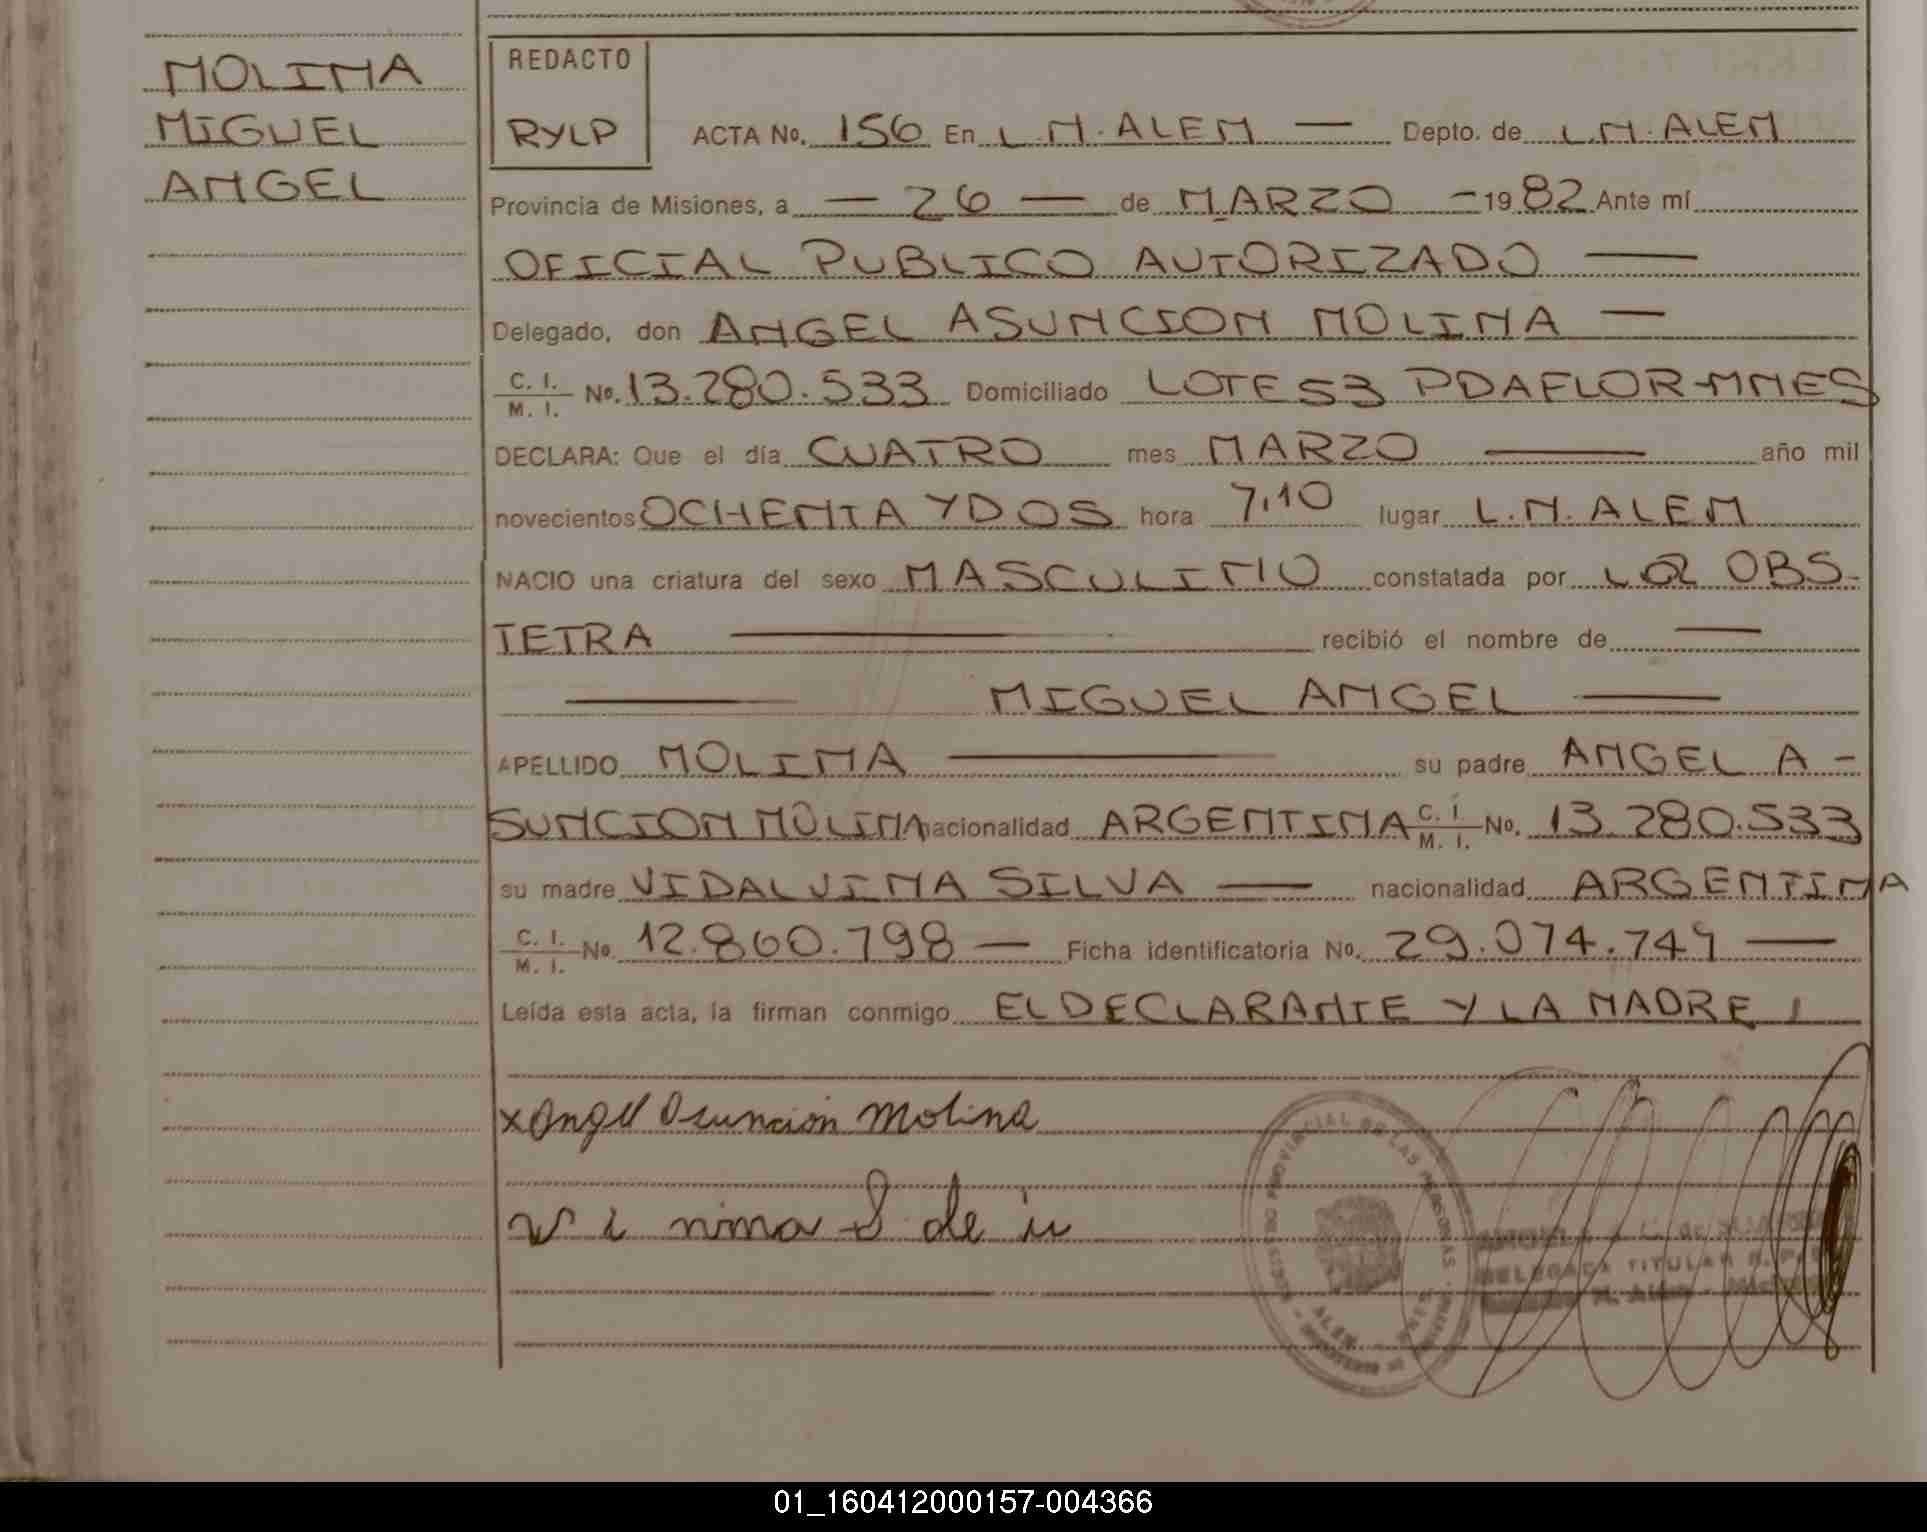 MOLINA
MIGUEL
ANGEL
REDACTO
RYLP
ACTA No. 156 En L.N. ALEM — Depto. de L.N. ALEM
Provincia de Misiones, a — 26 — de MARZO - 1982 Ante mí
OFICIAL PUBLICO AUTORIZADO —
Delegado, don ANGEL ASUNCION MOLINA —
C. I. / M. I. No. 13.280.533 Domiciliado LOTE 53 PDAFLOR-MNES
DECLARA: Que el día CUATRO mes MARZO — año mil
novecientos OCHENTA Y DOS hora 7,10 lugar L.N. ALEM
NACIO una criatura del sexo MASCULINO constatada por LA OBS-
TETRA — recibió el nombre de —
— MIGUEL ANGEL —
APELLIDO MOLINA — su padre ANGEL A-
SUNCION MOLINA nacionalidad ARGENTINA C. I. / M. I. No. 13.280.533
su madre VIDALVINA SILVA — nacionalidad ARGENTINA
C. I. / M. I. No. 12.860.798 — Ficha identificatoria No. 29.074.749 —
Leída esta acta, la firman conmigo EL DECLARANTE Y LA MADRE
x Angel Asuncion Molina
REGISTRO PROVINCIAL DE LAS PERSONAS
ALEM
DELEGADA TITULAR R. P.
N. Alem - Misiones
01_160412000157-004366